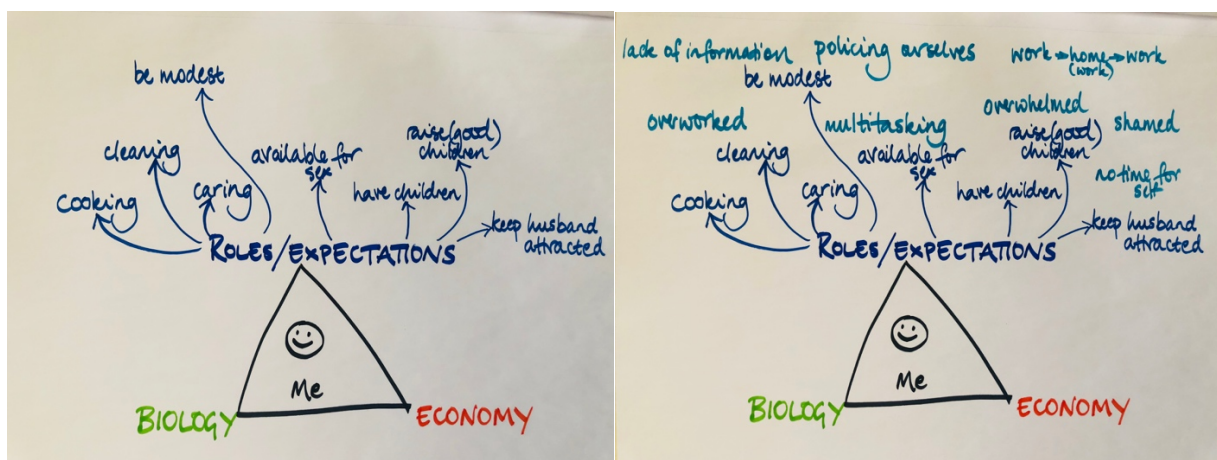 be modest
cleaning
caring
cooking
available for
sex
raise (good)
children
have children
keep husband
attracted
ROLES/EXPECTATIONS
Me
BIOLOGY
ECONOMY
lack of information
policing ourselves
work → home → work
(work)
be modest
overworked
multitasking
overwhelmed
shamed
cleaning
caring
cooking
available for
sex
raise (good)
children
have children
no time for
self
keep husband
attracted
ROLES/EXPECTATIONS
Me
BIOLOGY
ECONOMY